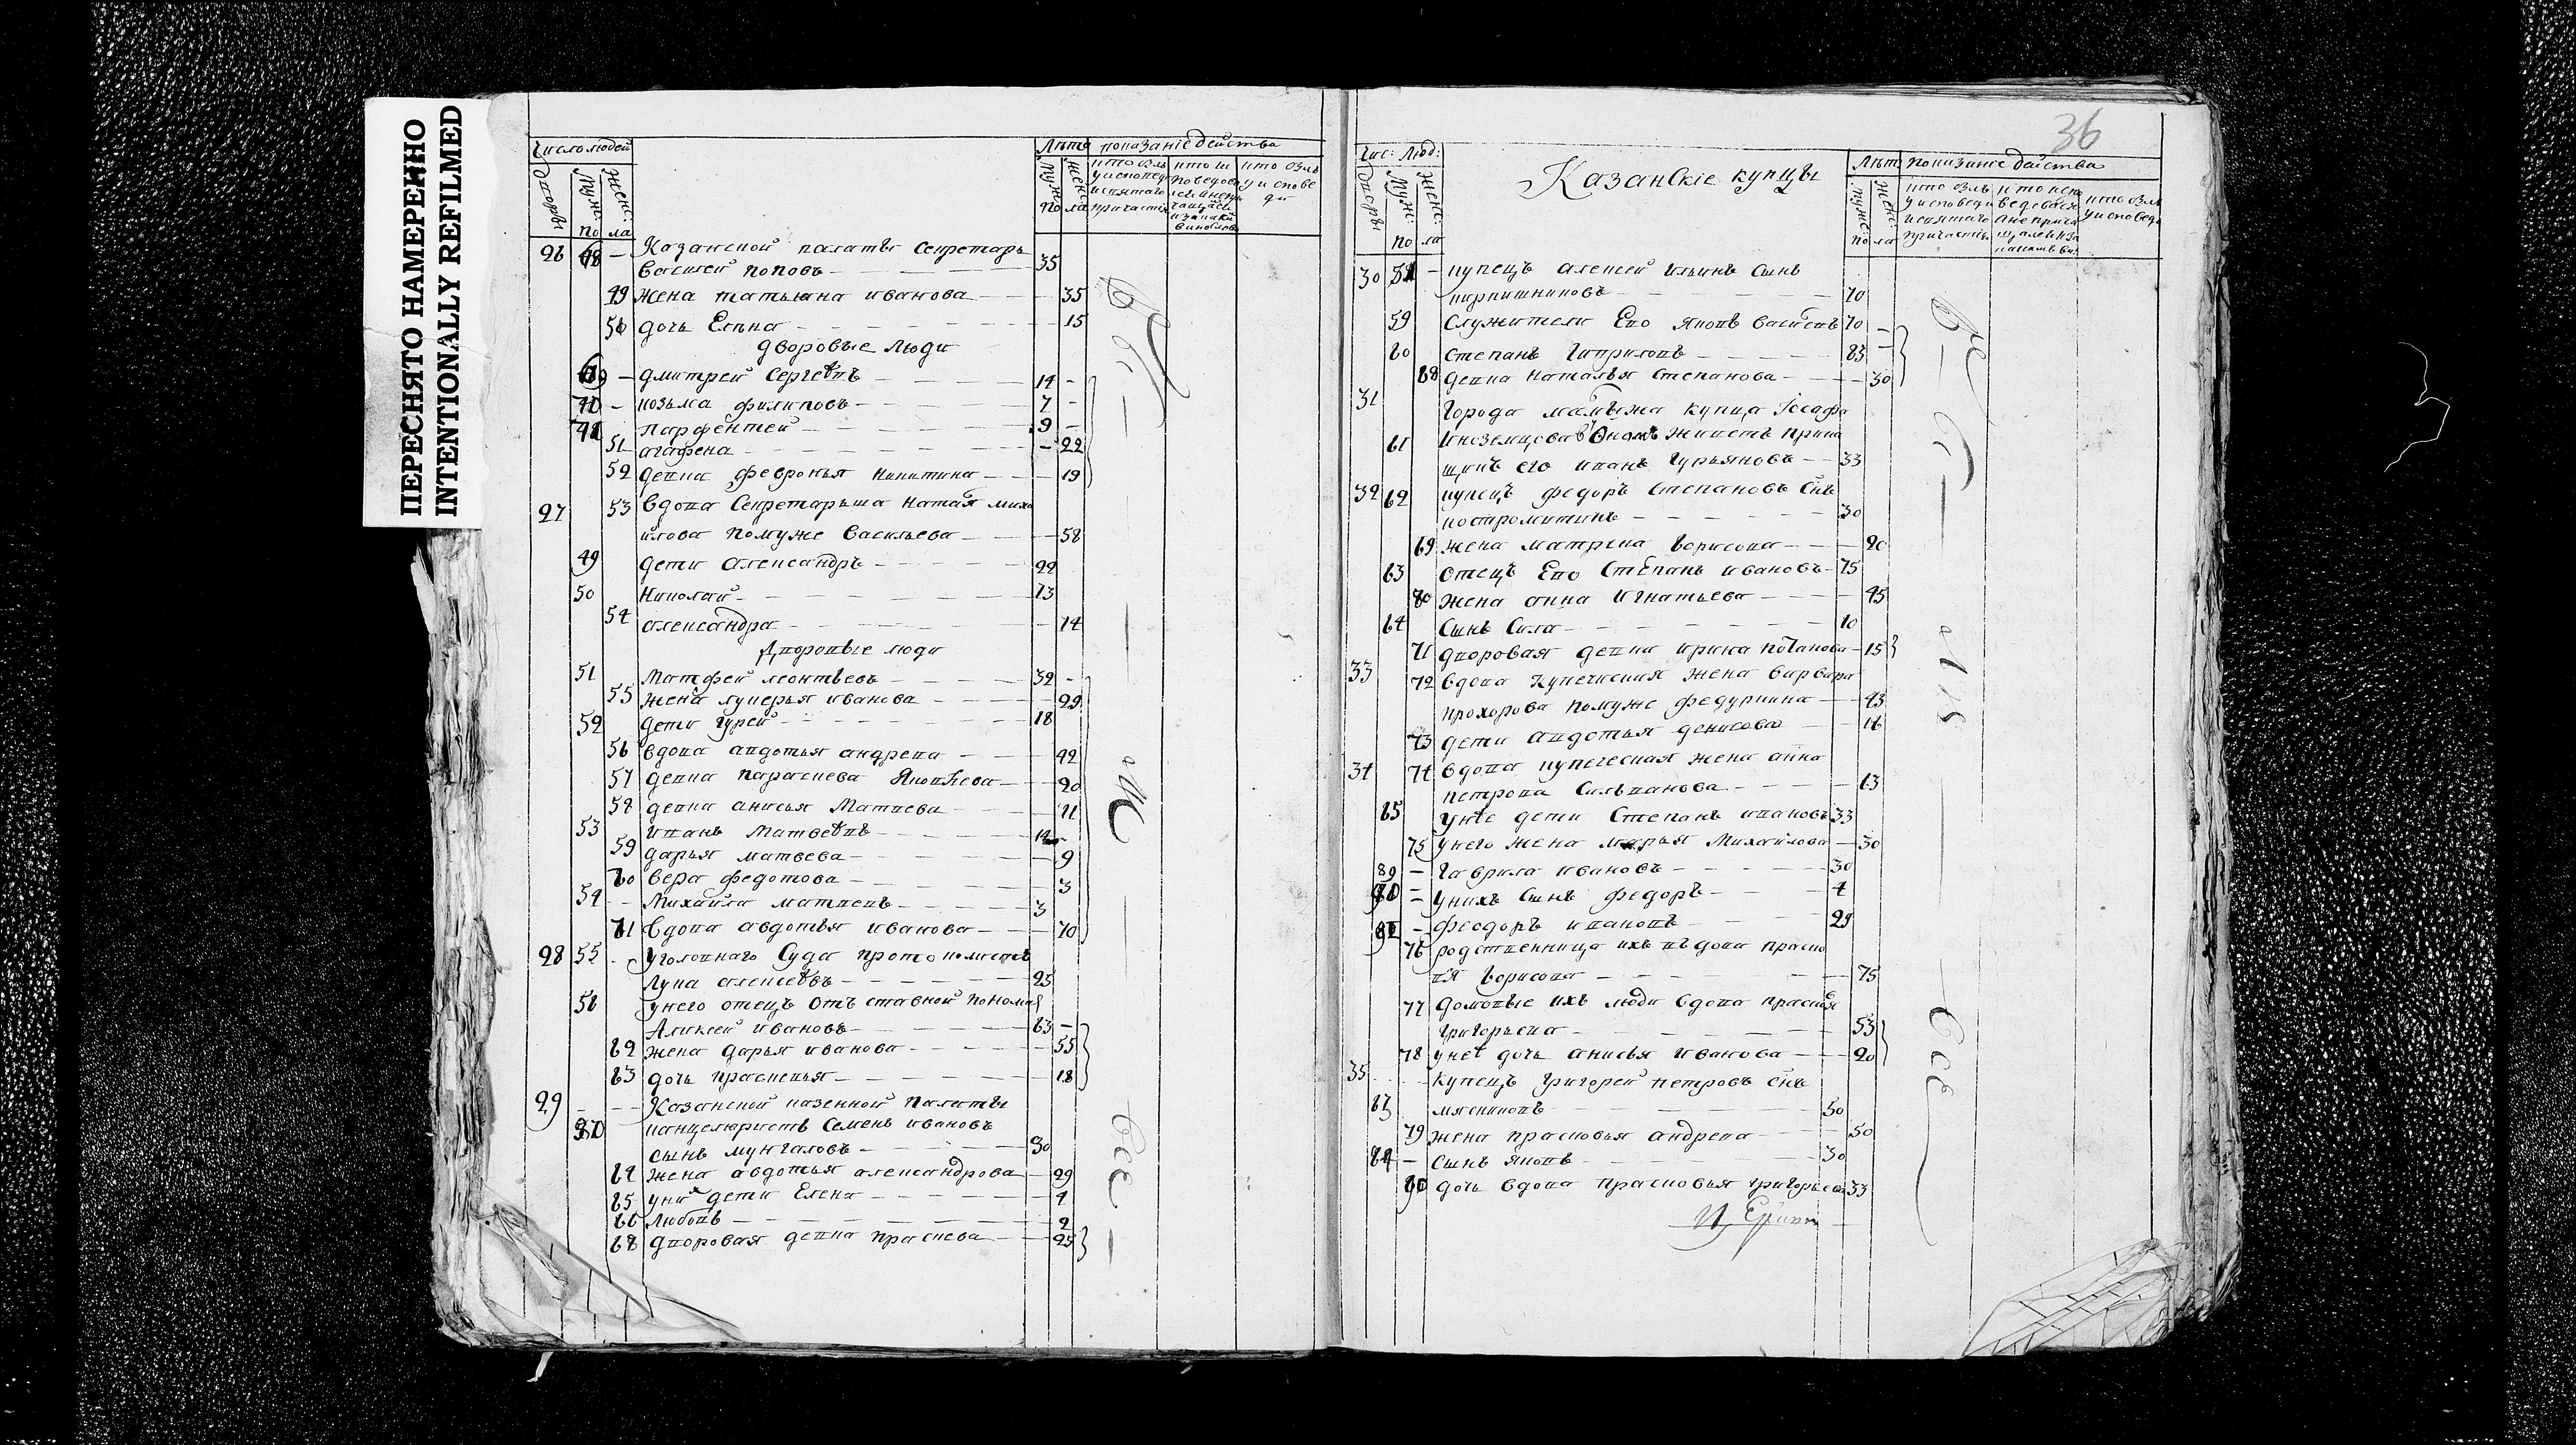 ПЕРЕСНЯТО НАМЕРЕННО
INTENTIONALLY REFILMED
Число людей
Лѣта показанiе действа
дворы муж: женс: по ла
муж: женс: по ла
26 48 — Казанской палаты Секретарь
Василей поповъ — 35
49 Жена татьяна иванова — 35
50 дочь Елѣна — 15
дворовые люди
— дмитрей Сергеѣвъ — 14 -
— козьма филиповъ — 7 -
парфентей — 9 -
51 агафена — 22
52 девка февронья Никитина — 19
27 53 вдова Секретарьша Наталя миха
илова помуже Васильева — 58
49 дети александръ — 22
50 Николай — 13
54 александра — 14
Дворовые люди
51 Матфей леонтьевъ — 32 -
55 жена лукерья иванова — 29
52 дети гурей — 18
56 вдова авдотья андреева — 42
57 девка параскева Яковлева — 20
58 девка анисья Матвева — 11
53 иванъ Матвеѣвъ — 14
59 дарья матвева — 9
60 вера федотова — 3
54 Михайла матвевъ — 3
61 вдова авдотья иванова — 70
28 55 уголовнаго Суда протоколистъ
Лука алексеѣвъ — 25
56 унего отецъ отъ ставной пономар
Алексей ивановъ — 63 -
62 жена дарья иванова — 55
63 дочь прасковья — 18
29 Казанской казенной палаты
канцеляристъ Семенъ ивановъ
сынъ мунгаловъ — 30
64 жена авдотья александрова — 29
65 уних дети Елена — 4
66 Любовь — 2
68 дворовая девка праскева — 25
все
36
Чис: Люд:
Казанскiе купцы
Лѣт показанiе действа
30 58 — купецъ алексей ильинъ сынъ
кирпишниковъ — 70
59 служители Ево яковъ васильевъ 70 —
60 степанъ гавриловъ — 83 —
68 девка наталья степанова — 30
31 города мамадыжа купца Iосафа
61 иноземцова в домѣ живетъ прика
щикъ его иванъ гурьяновъ — 33
32 62 купецъ федоръ степановъ снъ
костромитинъ — 30
69 жена матрена борисова — 20
63 отецъ Ево Степанъ ивановъ — 75
70 жена анна игнатьева — 45
64 Сынъ Сила — 10
71 дворовая девка ирина потапова — 15
33 72 вдова купеческия жена варвара
прохорова помуже федуркина — 43
73 дети авдотья денисова 16
34 74 вдова купеческая жена анна
петрова Сильванова — 63
65 унѣе дети Степанъ ивановъ 33
75 унего жена марья Михайлова — 30
— гаврила ивановъ — 30
— унихъ сынъ федоръ — 4
— феодоръ ивановъ — 29
76 родственница ихъ въдова праско
вя борисова — 75
77 домовые ихъ люди вдова прасковя
григорьева — 53
78 унеѣ дочь анисья иванова — 20
35 купецъ григорей петровъ снъ
мясниковъ — 50
79 жена прасковья андрева — 50
— сынъ яковъ — 30
80 дочь вдова прасковья григорьева 33
все